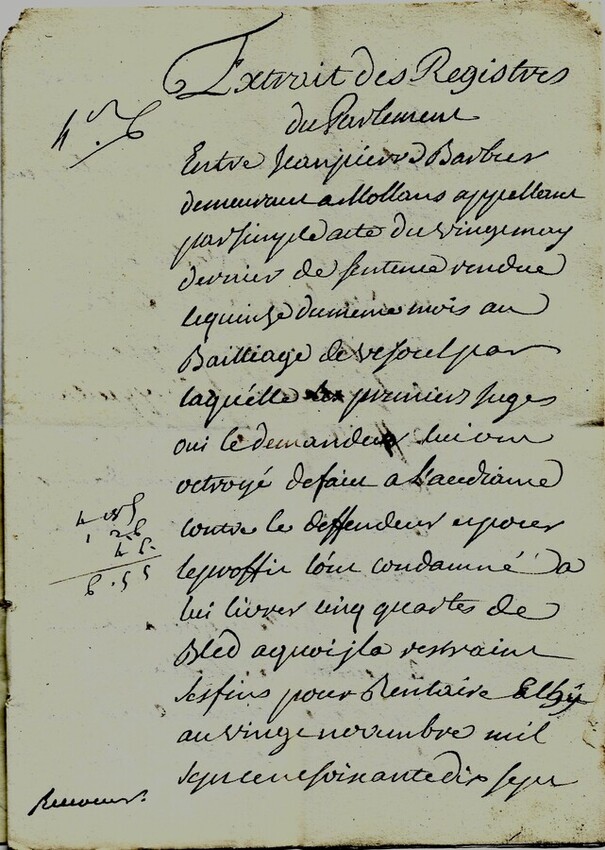 Extrait des Registres
du Parlement
Entre Jeanpierre Barbier
demeurant a Mollans appellant
par simple acte du vingt may
dernier de sentence rendue
le quinze du meme mois au
Bailliage de vesoul par
laquélle premiers Juges
oui le demandeur lui ont
octroyé defaut a Laudiance
contre le deffendeur et pour
le proffit lont condamné a
lui livrer cinq quartes de
Bled a quoi il a restraint
ses fins pour Rentaire
au vingt novembre mil
sept cent soixante dix sept
4
6